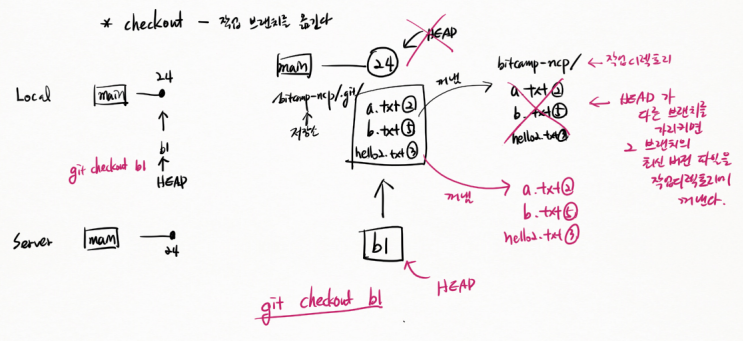 * checkout — 작업 브랜치를 옮긴다
HEAD
24
main
24
Local
main
/bitcamp-ncp/.git/
저장소
a.txt ②
b.txt ⑤
hello2.txt ③
꺼냄
bitcamp-ncp/ ← 작업디렉토리
a.txt ②
b.txt ⑤
hello2.txt ③
← HEAD가
다른 브랜치를
가리키면
그 브랜치의
최신 버전 파일을
작업디렉토리에
꺼낸다.
b1
git checkout b1
HEAD
꺼냄
a.txt ②
b.txt ⑤
hello2.txt ③
Server
main
24
b1
HEAD
git checkout b1